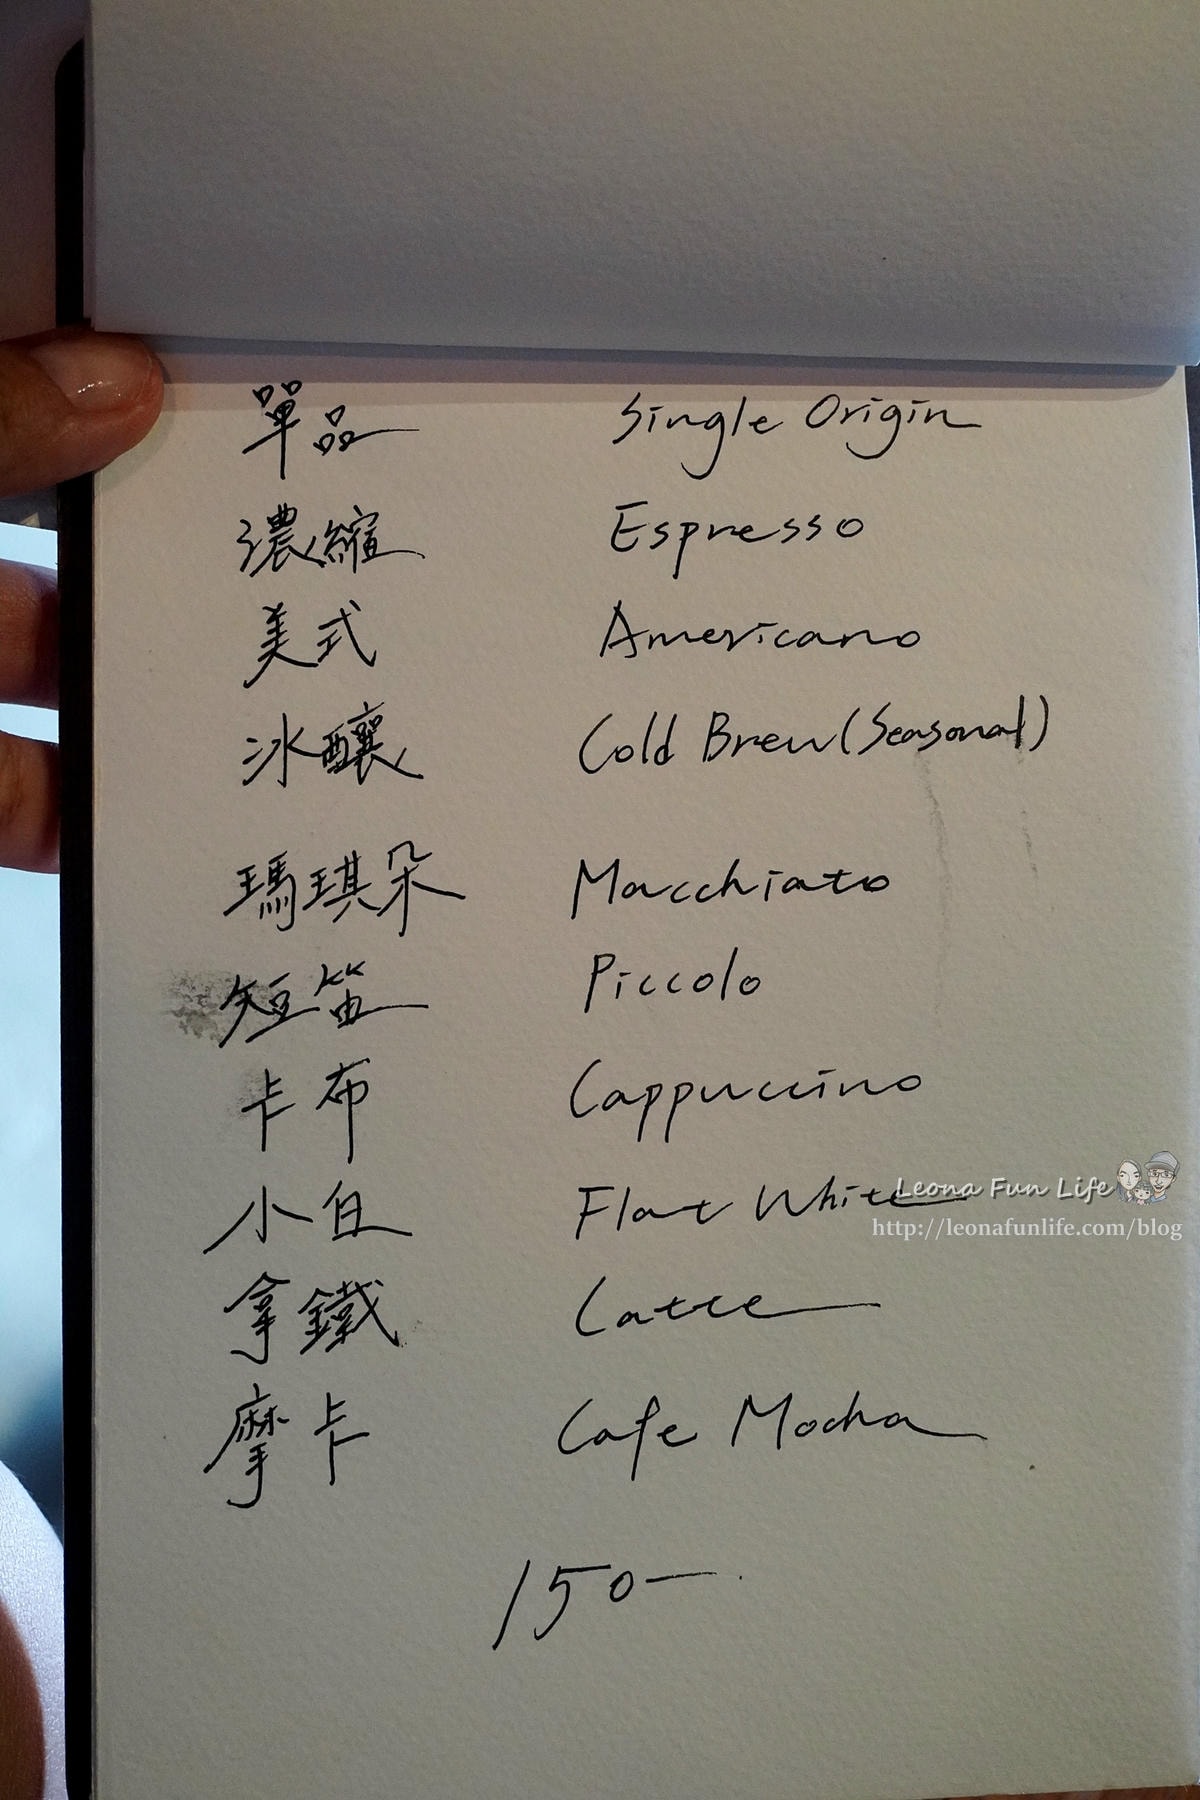 單品 Single Origin
濃縮 Espresso
美式 Americano
冰釀 Cold Brew (Seasonal)
瑪琪朵 Macchiato
短笛 Piccolo
卡布 Cappuccino
小白 Flat White
Leona Fun Life
http://leonafunlife.com/blog
拿鐵 Latte
摩卡 Cafe Mocha
150-